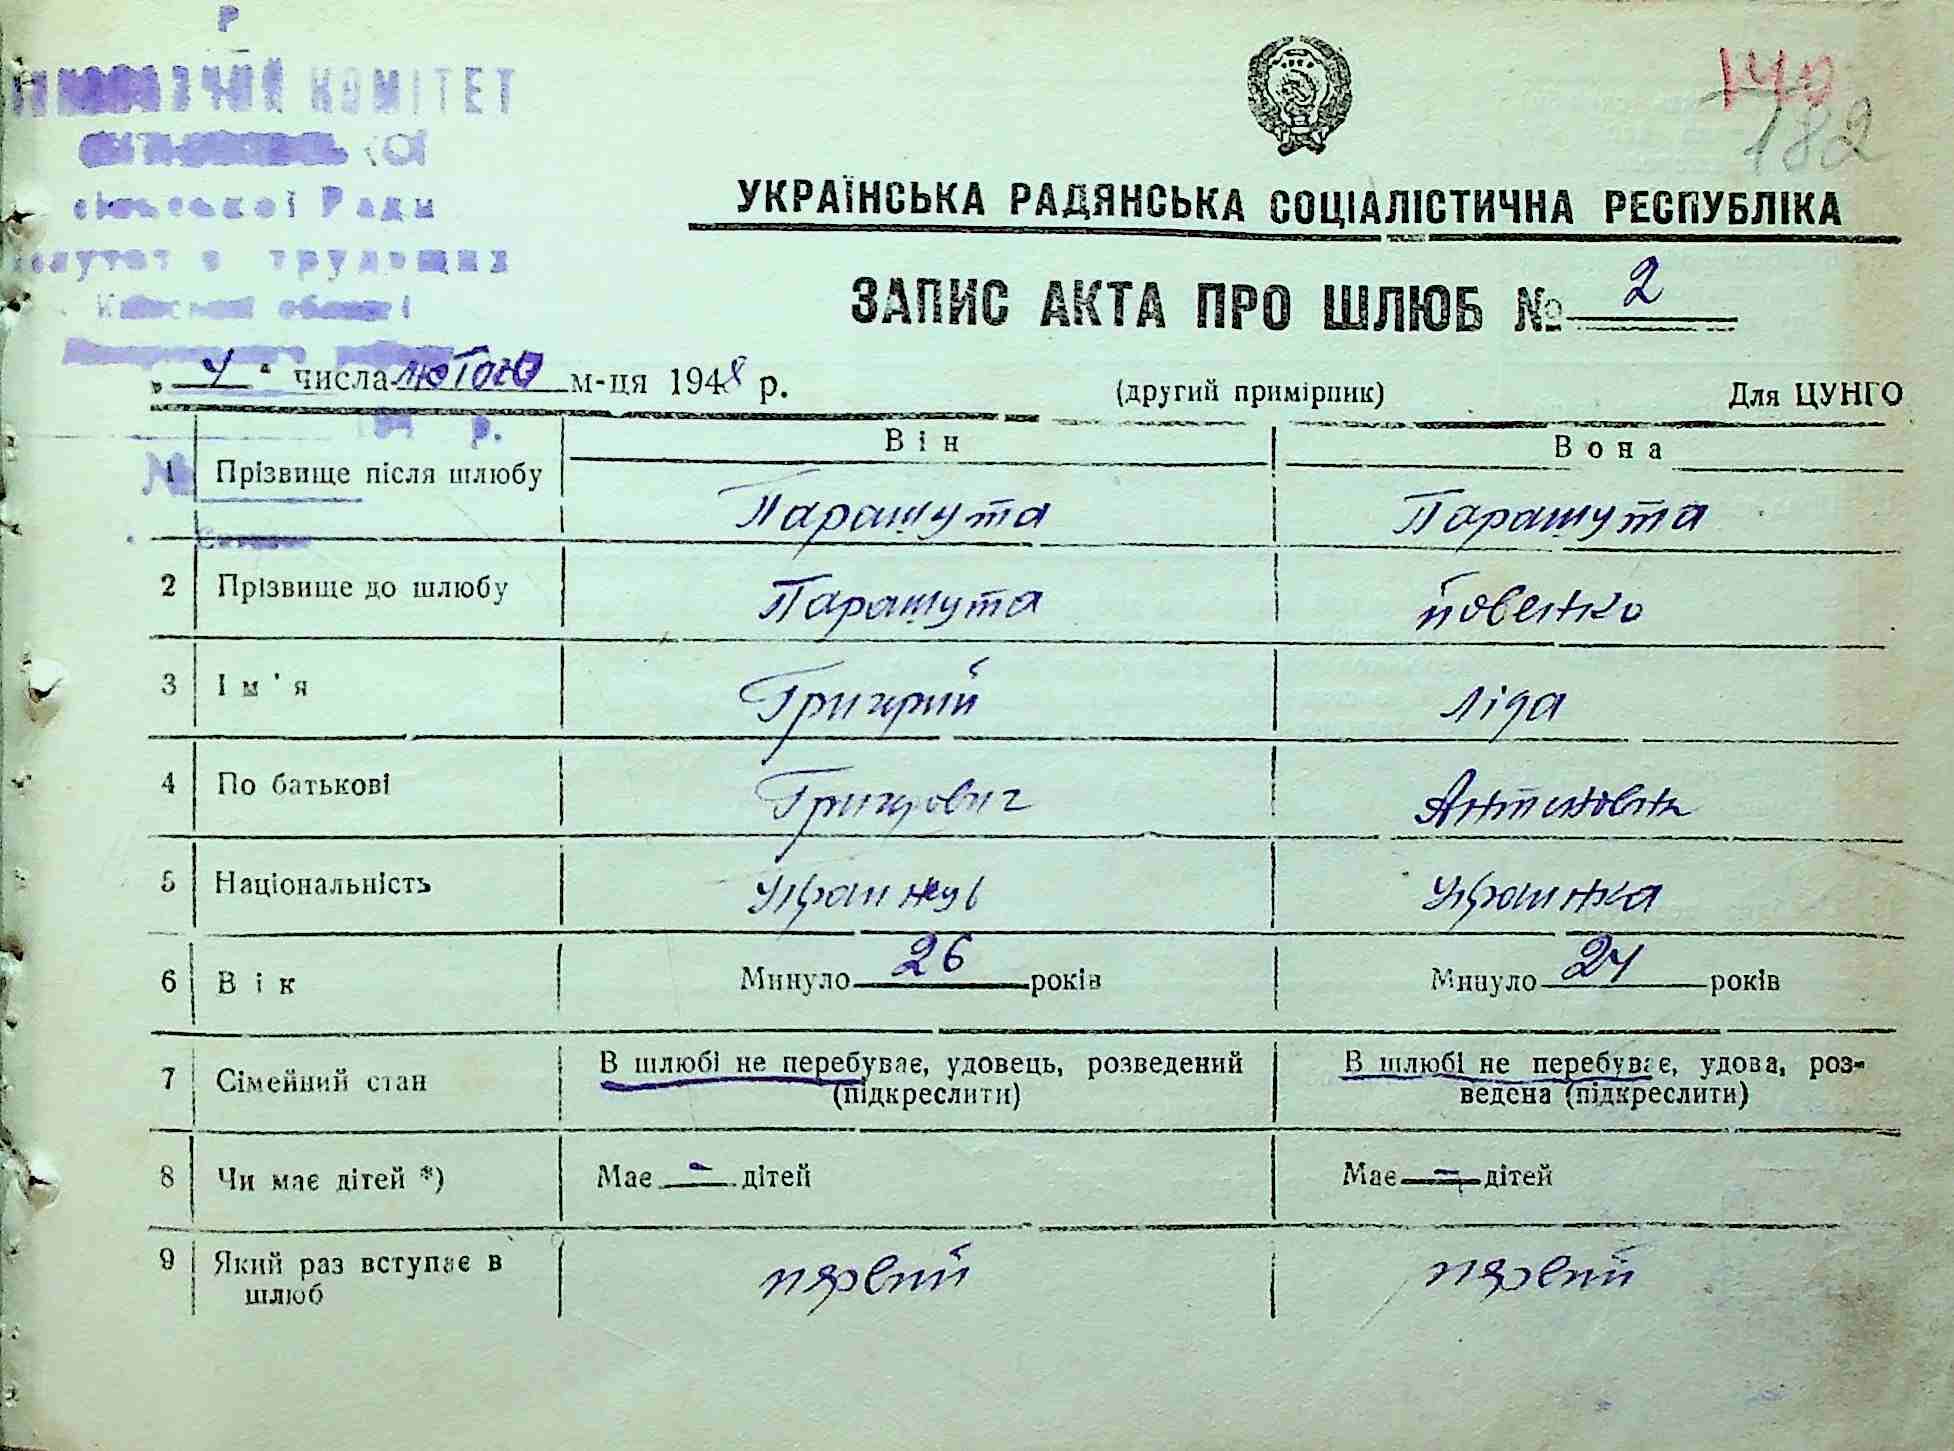 КОМІТЕТ
сільської Ради
депутатів трудящих
Київської області
140
182
УКРАЇНСЬКА РАДЯНСЬКА СОЦІАЛІСТИЧНА РЕСПУБЛІКА
ЗАПИС АКТА ПРО ШЛЮБ № 2
„ 4 “ числа лютого м-ця 1948 р. (другий примірник) Для ЦУНГО
194 р.
Він Вона
№
1 Прізвище після шлюбу Парашута Парашута
2 Прізвище до шлюбу Парашута Йовенко
3 Ім'я Григорий Ліда
4 По батькові Григорович
5 Національність Українець Українка
6 Вік Минуло 26 років Минуло 24 років
7 Сімейний стан В шлюбі не перебуває, удовець, розведений (підкреслити) В шлюбі не перебуває, удова, роз-
ведена (підкреслити)
8 Чи має дітей *) Має - дітей Має = дітей
9 Який раз вступає в первий первий
шлюб